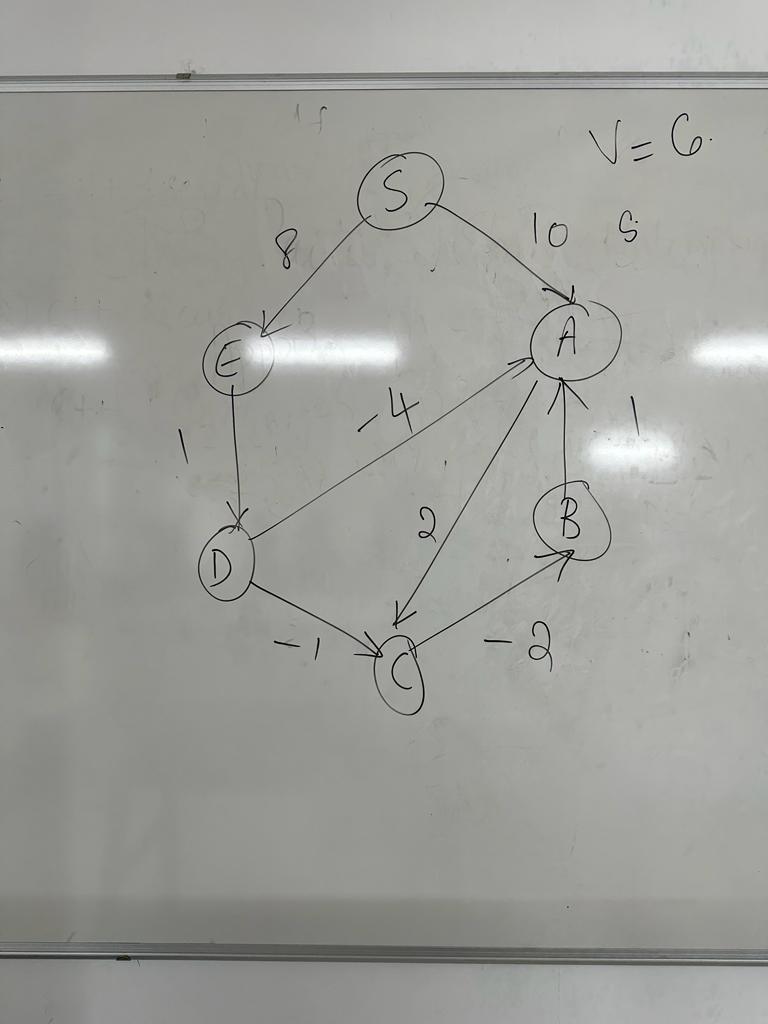 V = 6.
S
8
10 S
E
A
-4
1
1
2
B
D
-1
-2
C